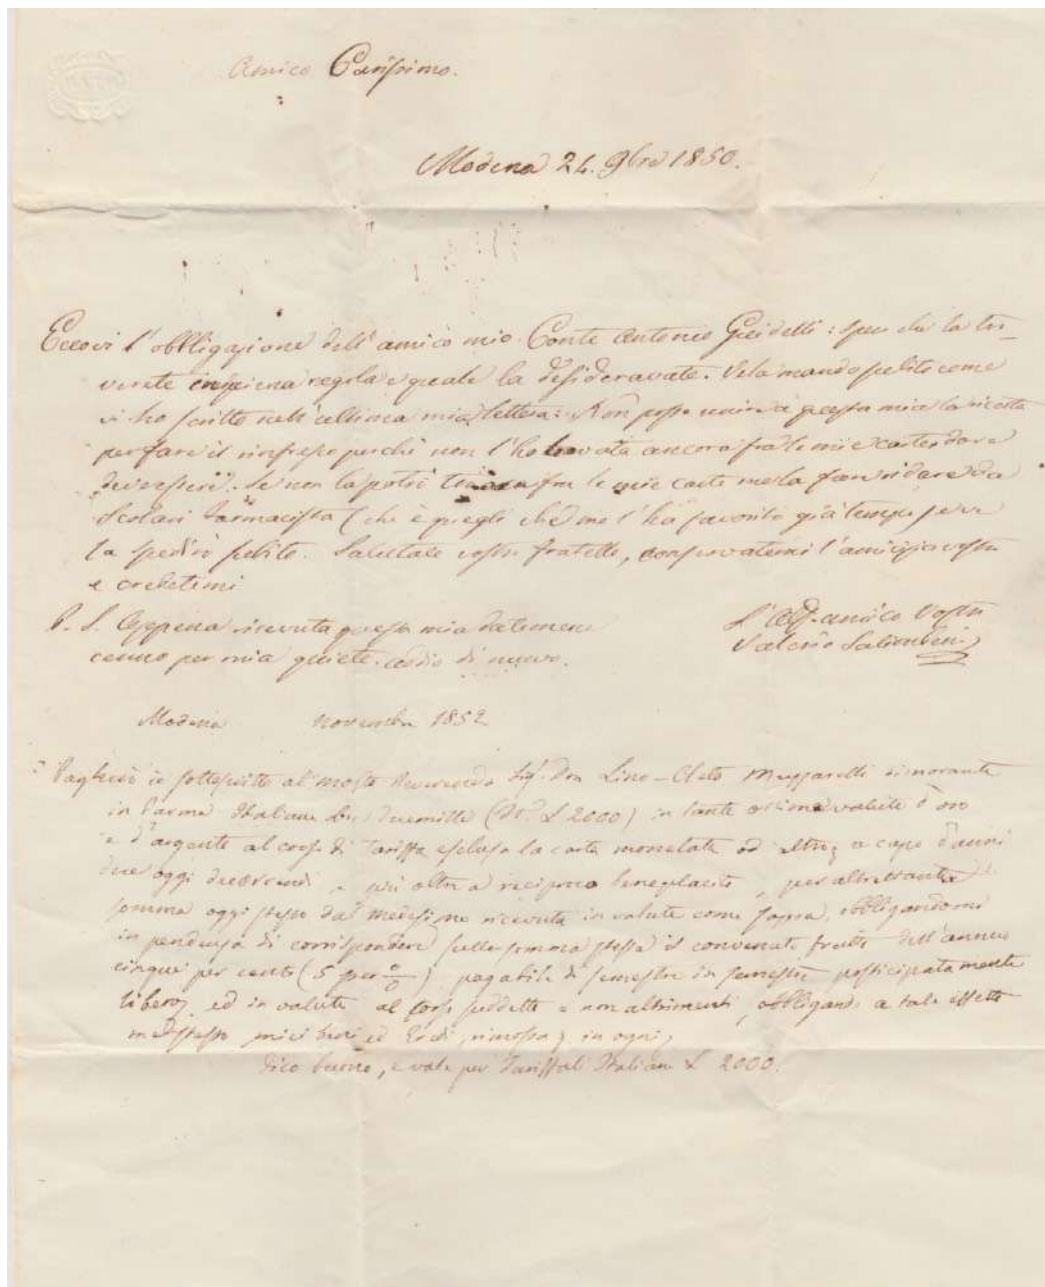 Amico Carissimo.
Modena 24. 9bre 1850.
Eccovi l'obbligazione dell'amico mio Conte Antonio Guidelli: spero che la tro-
verete in piena regola e quale la desideravate. Ve la mando subito come
vi ho scritto nell'ultima mia lettera: Non posso unire a questa mia la ricetta
per fare il rinfresco perchè non l'ho trovata ancora fra le mie carte dove
dev'essere. Se non la potrò fra le mie carte me la farò ridare da
Scolari Farmacista (che è quegli che me l'ha favorita già tempo, e ve
la spedirò subito. Salutate vostro fratello, conservatemi l'amicizia vostra
e credetemi
P. S. Appena ricevuta questa mia datemene
cenno per mia quiete. addio di nuovo.
L'aff. amico vostro
Valerio Salimbeni
Modena novembre 1852
Pagherò io sottoscritto al molto Reverendo Sig. Don Lino-Cleto Muzzarelli dimorante
in Parma Italiane Lire duemille (L 2000) in tante ottime valute d'oro
e d'argento al corso di Tariffa esclusa la carta monetata ed altro, a capo d'anni
due oggi decorrendi e più oltre a reciproco beneplacito, per altrettanta
somma oggi stesso dal medesimo ricevuta in valute come sopra, obbligandomi
in pendenza di corrispondere sulla somma stessa il convenuto frutto dell'annuo
cinque per cento (5 per %) pagabile di semestre in semestre posticipatamente
libero, ed in valute al corso suddetto e non altrimenti, obbligando a tale effetto
me stesso miei beni ed Eredi, rimossa, in ogni,
Dico buono, e vale per Italiane L 2000.